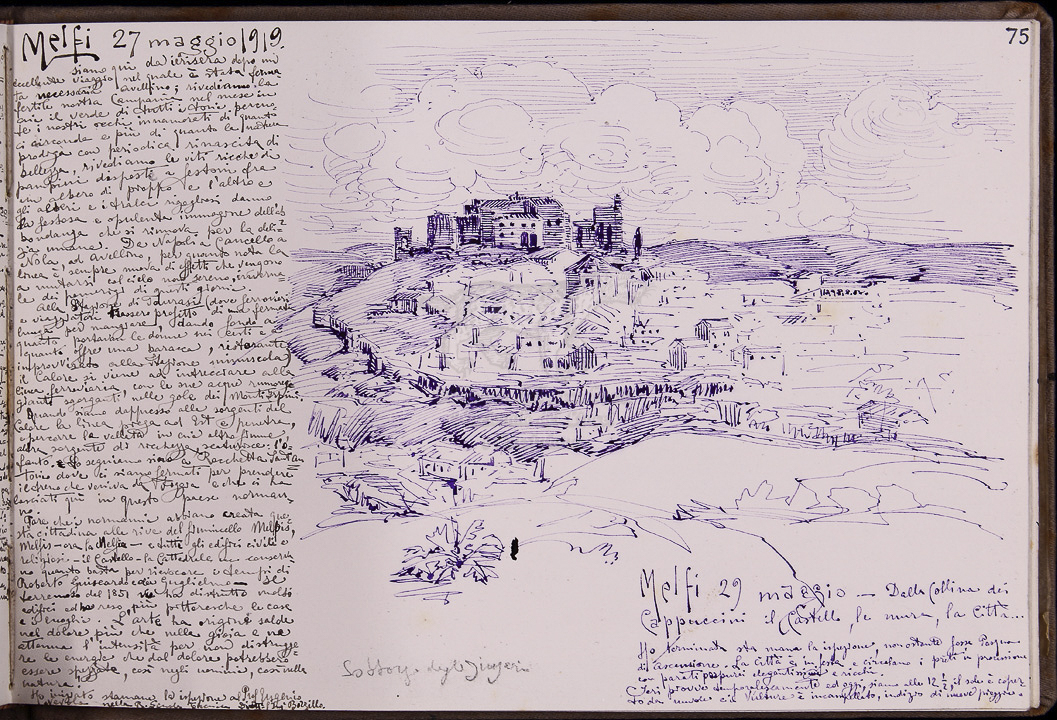 75
Melfi 27 maggio 1919.
siamo qui da ierisera dopo un
eccellente viaggio nel quale è stata ferma
ta necessaria Avellino; rivedremo la
fertile nostra Campania nel mese in
cui il verde di tutti i toni percuo
te i nostri occhi innamorati di quanto
ci circonda e più di quanto la natura
prodiga con periodica rinascita di
bellezza, rivediamo le viti ricche di
pampini disposte a festoni fra
un albero di pioppo e l'altro e
gli alberi e i tralci rigogliosi danno
la festosa e opulenta immagine dell'ab
bondanza che si rinnova per la deli
zia umana. Da Napoli a Cancello a
Nola, ad Avellino, per quanto nota la
linea è sempre nuova di effetti che vengono
a mutarsi col cielo non sereno
le dei pomeriggi di questi giorni.
Alla Stazione di Taurasi (dove ferrovieri
e viaggiatori profitto di una fermata
lunga per mangiare, dando fondo a
quanto portano le donne sui cesti e a
quanto offre una baracca, ristorante
improvvisato alla stazione minuscola)
il Calore si viene ad intrecciare alla
linea ferroviaria, con le sue acque rumoreg
gianti sgorganti nelle gole dei Monti Irpini.
Quando siamo dappresso alle sorgenti del
Calore la linea piega ad Est e penetra,
a percorre la vallata in cui altro fiume,
altra sorgente di ricchezza scaturisce: l'O
fanto. E lo seguiamo sino a Rocchetta Sant'An
tonio dove ci siamo fermati per prendere
il treno che veniva da Foggia e che ci ha
lasciati qui in questo paese norman
no.
Pare che i normanni abbiano creata que
sta cittadina alle rive del fiumicello Melpis,
Melfis - ora la Melfia - e tutti gli edifici civili e
religiosi - il Castello - la Cattedrale ne conserva
no quanto basta per rievocare i tempi di
Roberto Guiscardo e di Guglielmo - Il
terremoto del 1851 ne ha distrutto molti
edifici ed ha reso più pittoresche le case
e i luoghi. L'arte ha origini salde
nel dolore più che nella gioia e ne
attenua l'intensità per non distrugge
re le energie che dal dolore potrebbero
essere spezzate, così negli uomini, così nella
natura.
Ho iniziato stamane la ispezione al Prof. Eugenio
nella R. Scuola tecnica
Melfi 29 maggio - Dalla Collina dei
Cappuccini il Castello, le mura, la Città...
Ho terminata sta mane la ispezione, non ostante fosse Pasqua
di Ascensione. La Città è in festa e circolano i preti in processione
con parati pur elegantissimi e ricchi.
Ieri piovve temporalescamente ed oggi, siamo alle 12 ½, il sole è coper
to da nuvole e il Vulture è incappellato, indizio di nuova pioggia.